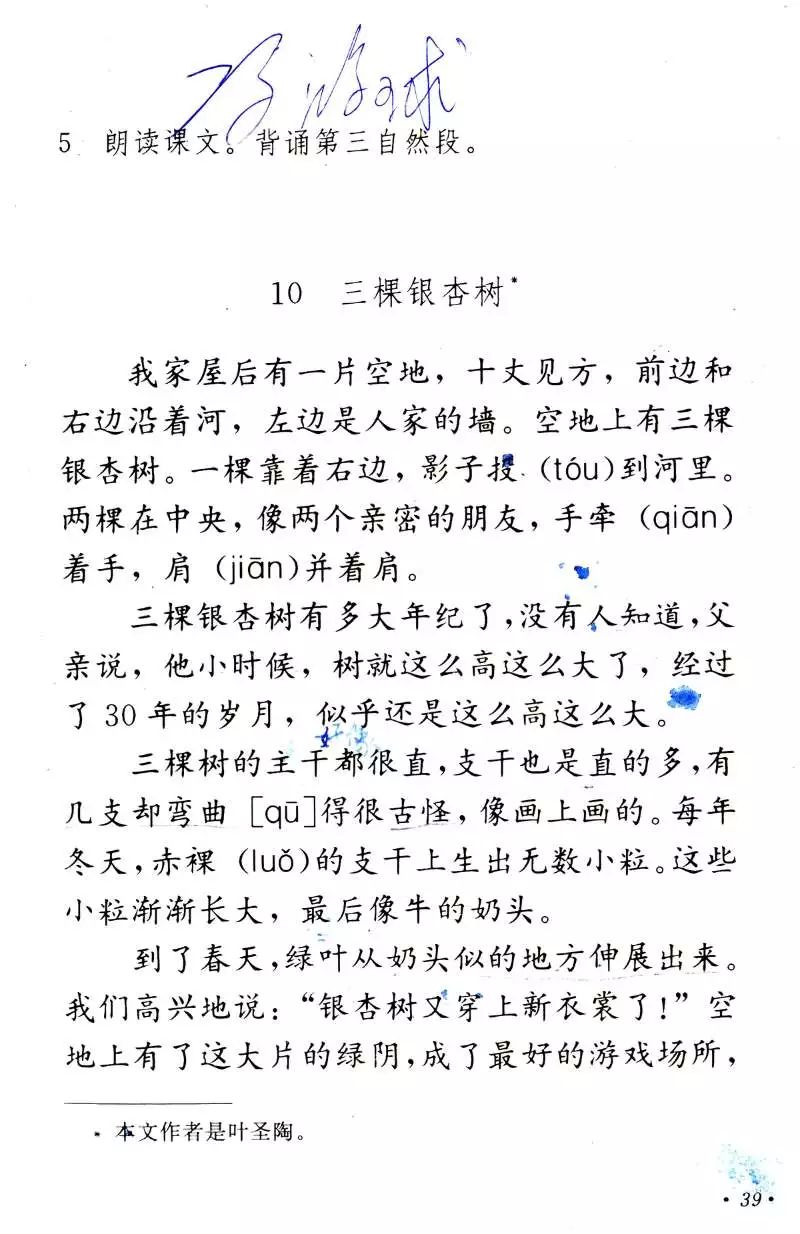 5 朗读课文。背诵第三自然段。
10 三棵银杏树*
我家屋后有一片空地，十丈见方，前边和
右边沿着河，左边是人家的墙。空地上有三棵
银杏树。一棵靠着右边，影子投（tóu）到河里。
两棵在中央，像两个亲密的朋友，手牵（qiān）
着手，肩（jiān）并着肩。
三棵银杏树有多大年纪了，没有人知道，父
亲说，他小时候，树就这么高这么大了，经过
了30年的岁月，似乎还是这么高这么大。
好像
三棵树的主干都很直，支干也是直的多，有
几支却弯曲［qū］得很古怪，像画上画的。每年
冬天，赤裸（luǒ）的支干上生出无数小粒。这些
小粒渐渐长大，最后像牛的奶头。
到了春天，绿叶从奶头似的地方伸展出来。
我们高兴地说：“银杏树又穿上新衣裳了！”空
地上有了这大片的绿阴，成了最好的游戏场所，
* 本文作者是叶圣陶。
·39·